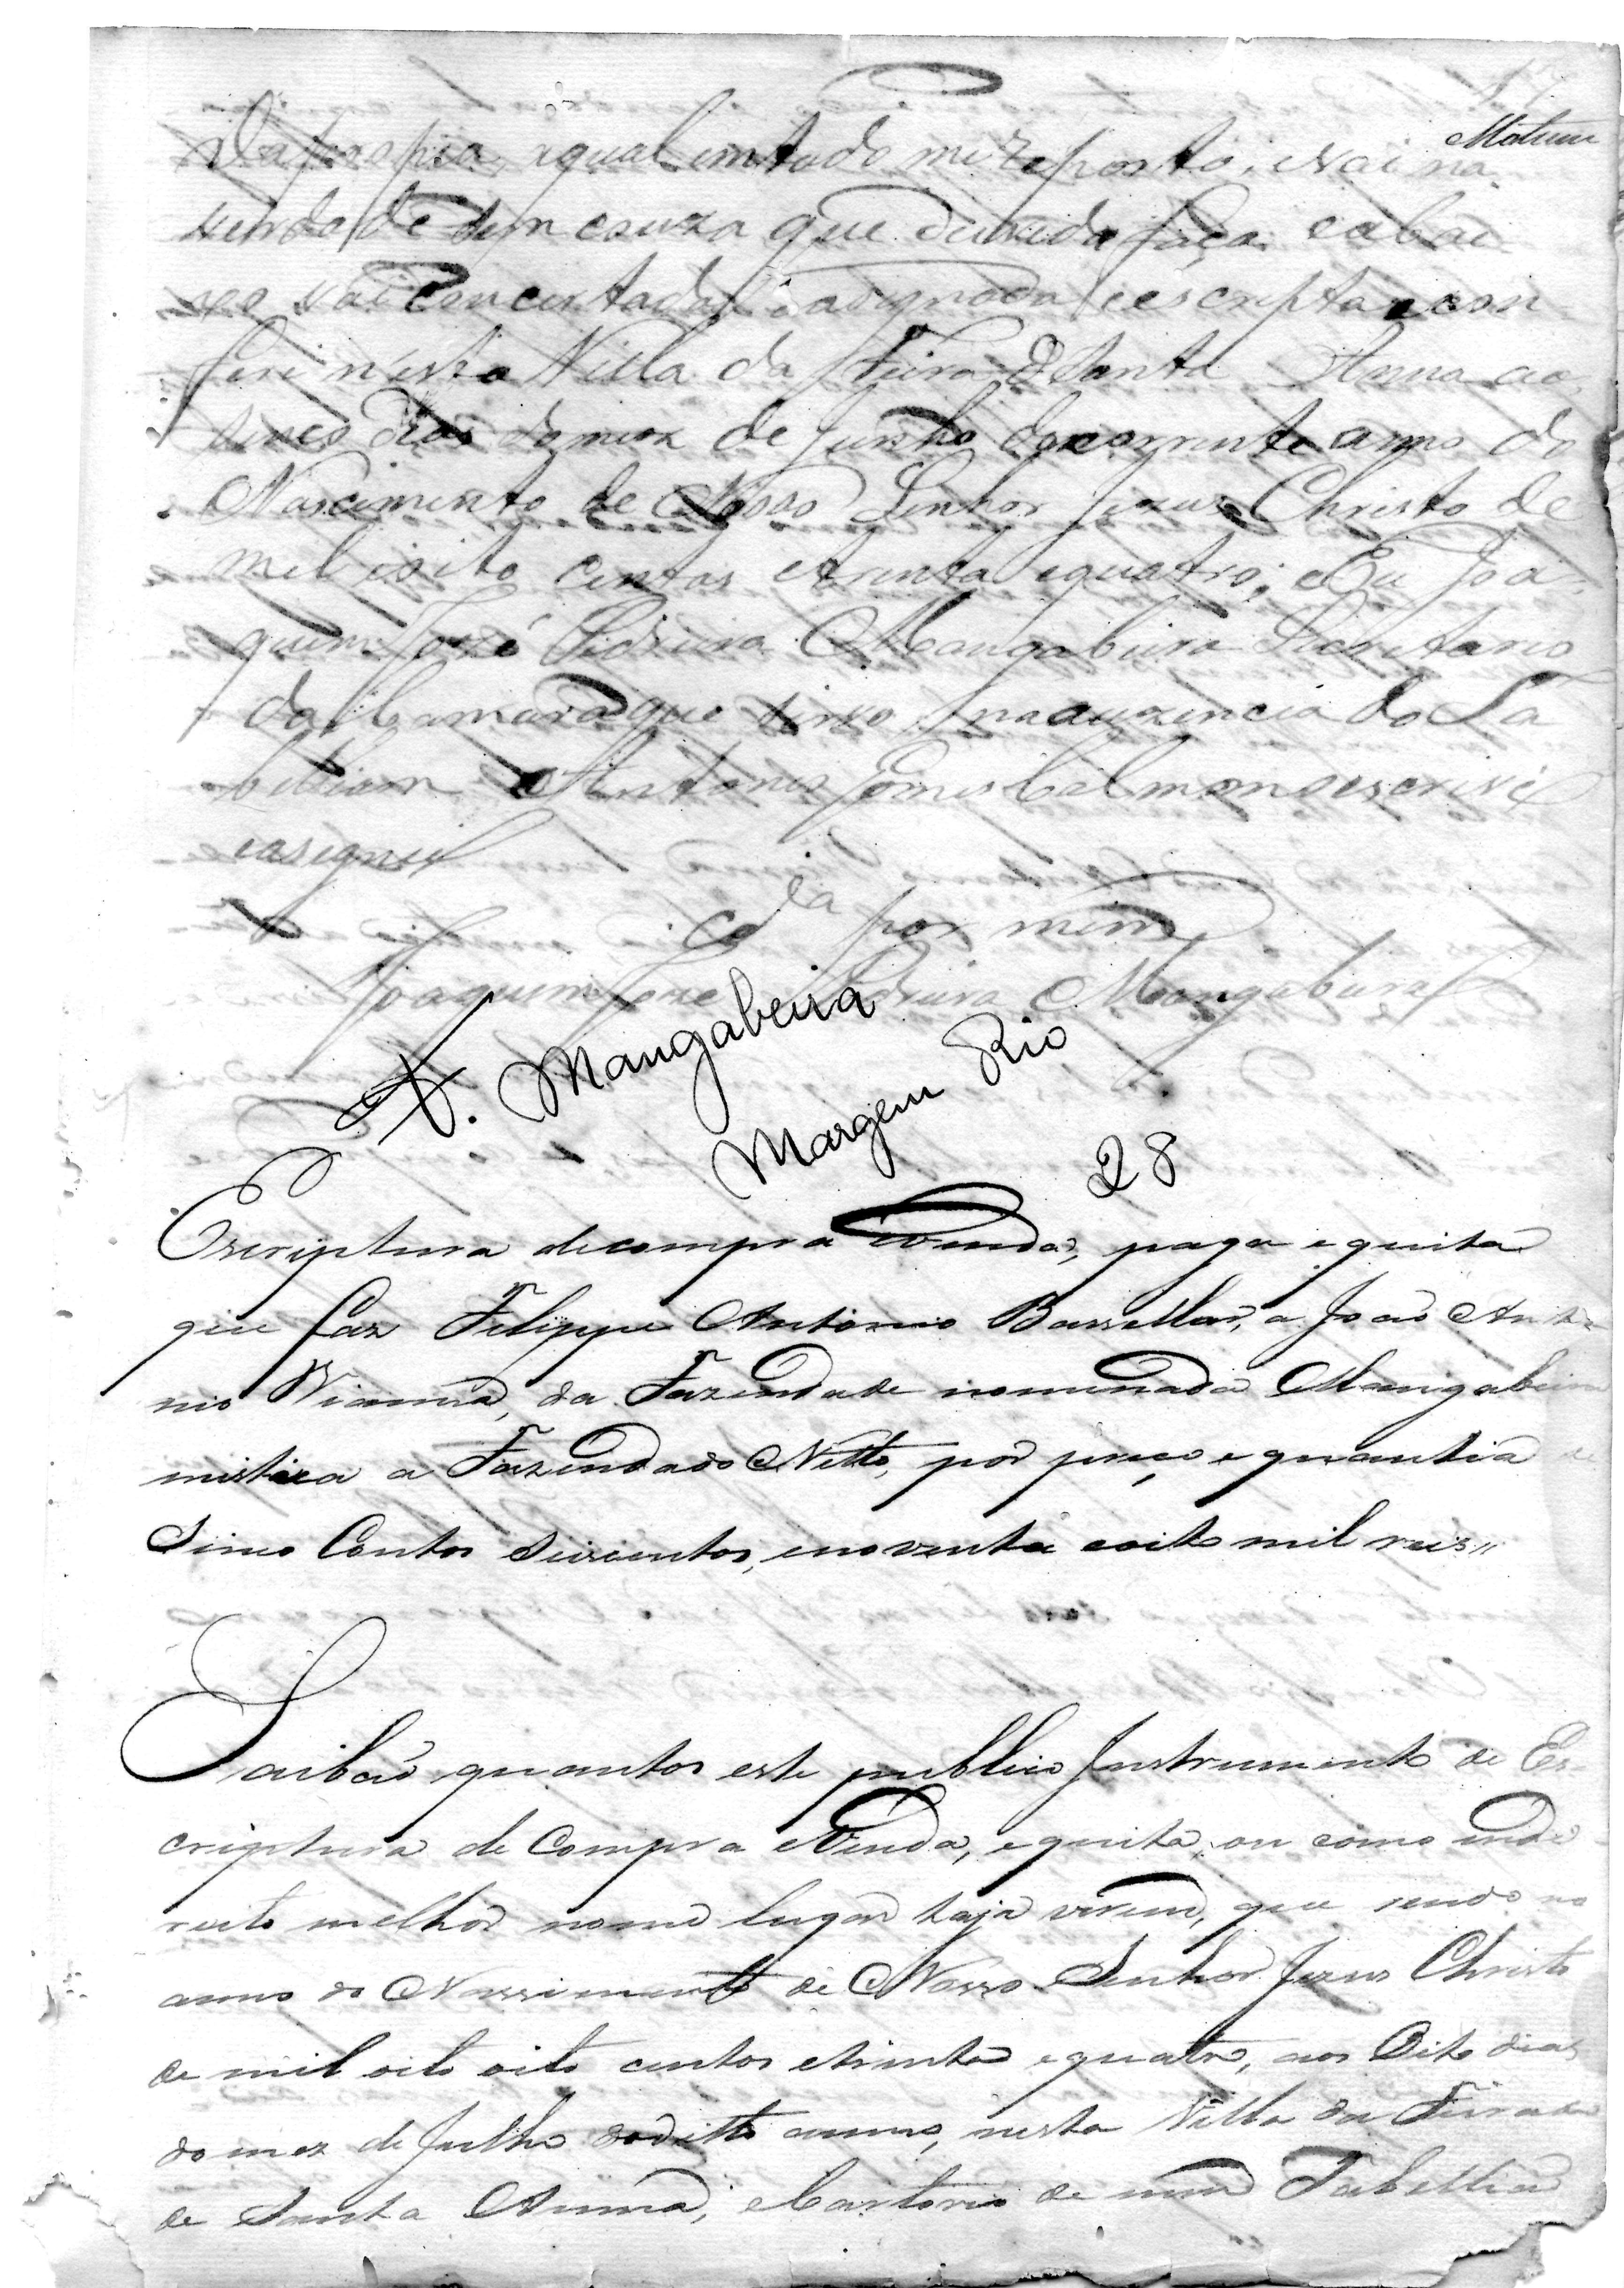 propria, aqual emtudo me reporto, e vai na
verdade sem couza que duvida faça eabai
xo vai concertada, e asignada e escripta e con
feri n'esta Villa da Feira de Santa Anna aos
sinco dias domez de Junho docorrente anno do
Nascimento de Nosso Senhor Jezus Christo de
mil e oito centos etrinta equatro; eEu Joa
quim José Pedreira Mangabeira Secretario
da Camara que sirvo na auzencia do Ta
bellian Antonio Gomes Calmon oescrivi
easignei
por mim
Joaquim Joze Pedreira Mangabeira
Mangabeira
Margem Rio
28
Escriptura decompra evenda, paga equita
que faz Filippe Antonio Bassellar, a João Anto
nio Vianna, da Fazenda de nominada Mangabeira
mistica a Fazenda do Netto, por preço equantia de
Sinco Contos Seiscentos, enoventa eoito mil reis,,
Saibão quantos este publico Instrumento de Es
criptura de Compra eVenda, equita, ou como endi
reito melhor nome lugar haja virem, que sendo no
anno do Nassimento de Nosso Senhor Jezus Christo
de mil oito oito centos etrinta equatro, aos Oito dias
do mez de Julho doditto anno, nesta Villa da Feira
de Santa Anna, eCartorio de mim Tabellião